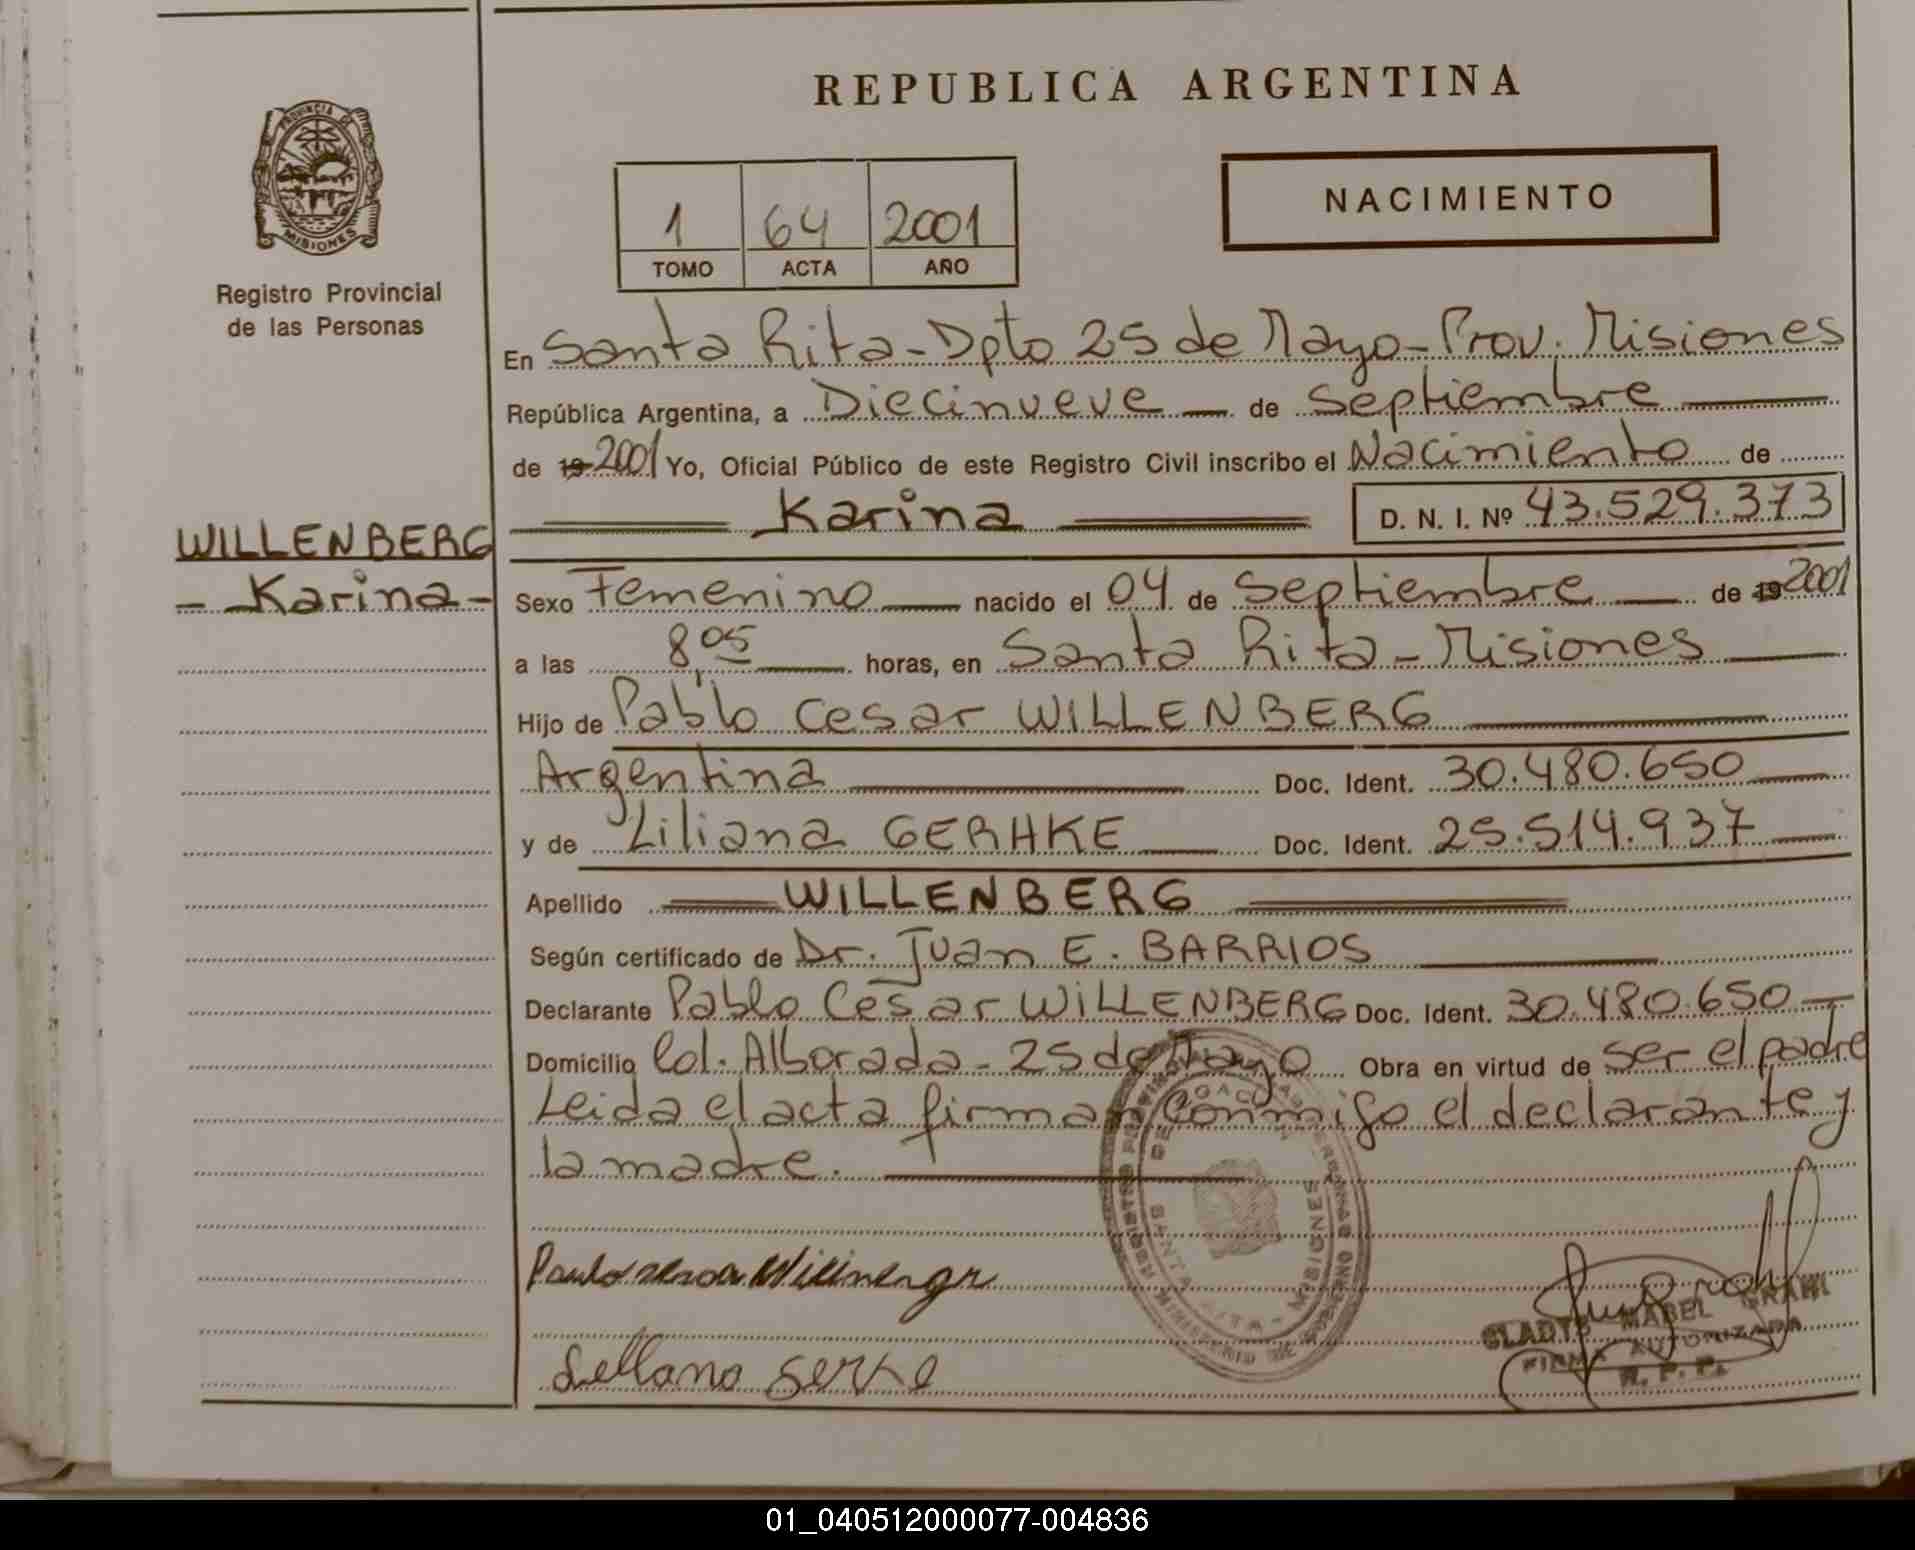 REPUBLICA ARGENTINA
PROVINCIA DE
MISIONES
Registro Provincial
de las Personas
NACIMIENTO
1 64 2001
TOMO ACTA AÑO
En Santa Rita - Dpto 25 de Mayo - Prov. Misiones
República Argentina, a Diecinueve de Septiembre
de 19 2001 Yo, Oficial Público de este Registro Civil inscribo el Nacimiento de
Karina D. N. I. Nº 43.529.373
WILLENBERG
- Karina -
Sexo Femenino nacido el 04 de Septiembre de 19 2001
a las 8,05 horas, en Santa Rita - Misiones
Hijo de Pablo Cesar WILLENBERG
Argentina Doc. Ident. 30.480.650
y de Liliana GERHKE Doc. Ident. 25.514.937
Apellido WILLENBERG
Según certificado de Dr. Juan E. BARRIOS
Declarante Pablo Cesar WILLENBERG Doc. Ident. 30.480.650
Domicilio Col. Alborada - 25 de Mayo Obra en virtud de ser el padre
Leida el acta firman conmigo el declarante y
la madre.
SANTA RITA - MISIONES
GLADYS MABEL
FIRMA AUTORIZADA
R. P. P.
01_040512000077-004836